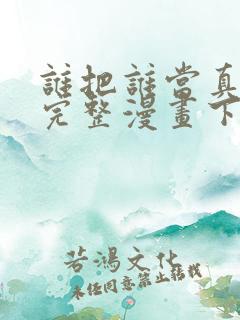 誰把誰當真
完整漫畫下
若鴻文化
未經同意禁止轉載